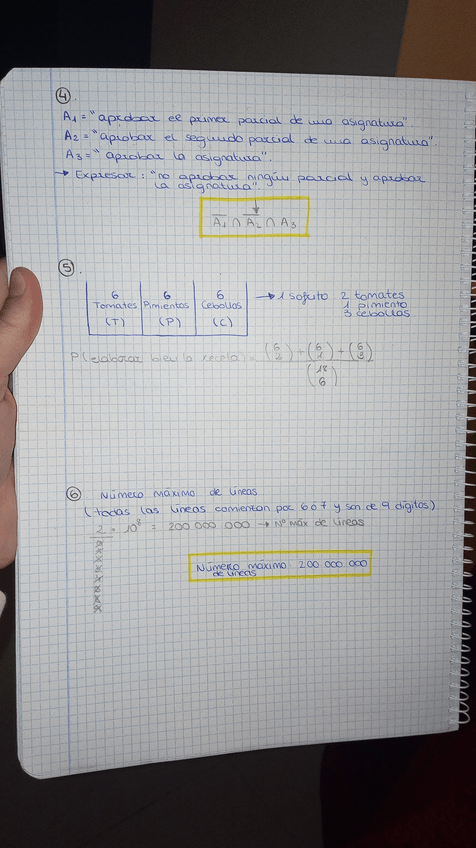 4
A1 = "aprobar el primer parcial de una asignatura"
A2 = "aprobar el segundo parcial de una asignatura".
A3 = "aprobar la asignatura".
→ Expresar: "no aprobar ningún parcial y aprobar
la asignatura".
A̅1 ∩ A̅2 ∩ A3
5
6 Tomates (T) 6 Pimientos (P) 6 Cebollas (C)
→ 1 sofrito 2 tomates
1 pimiento
3 cebollas
P(elaborar bien la receta) = (6 2) + (6 1) + (6 3)
(18 6)
6 Número máximo de líneas
(todas las líneas comienzan por 6 o 7 y son de 9 dígitos)
2 · 10⁸ = 200 000 000 → Nº máx de líneas
Número máximo 200 000 000
de líneas